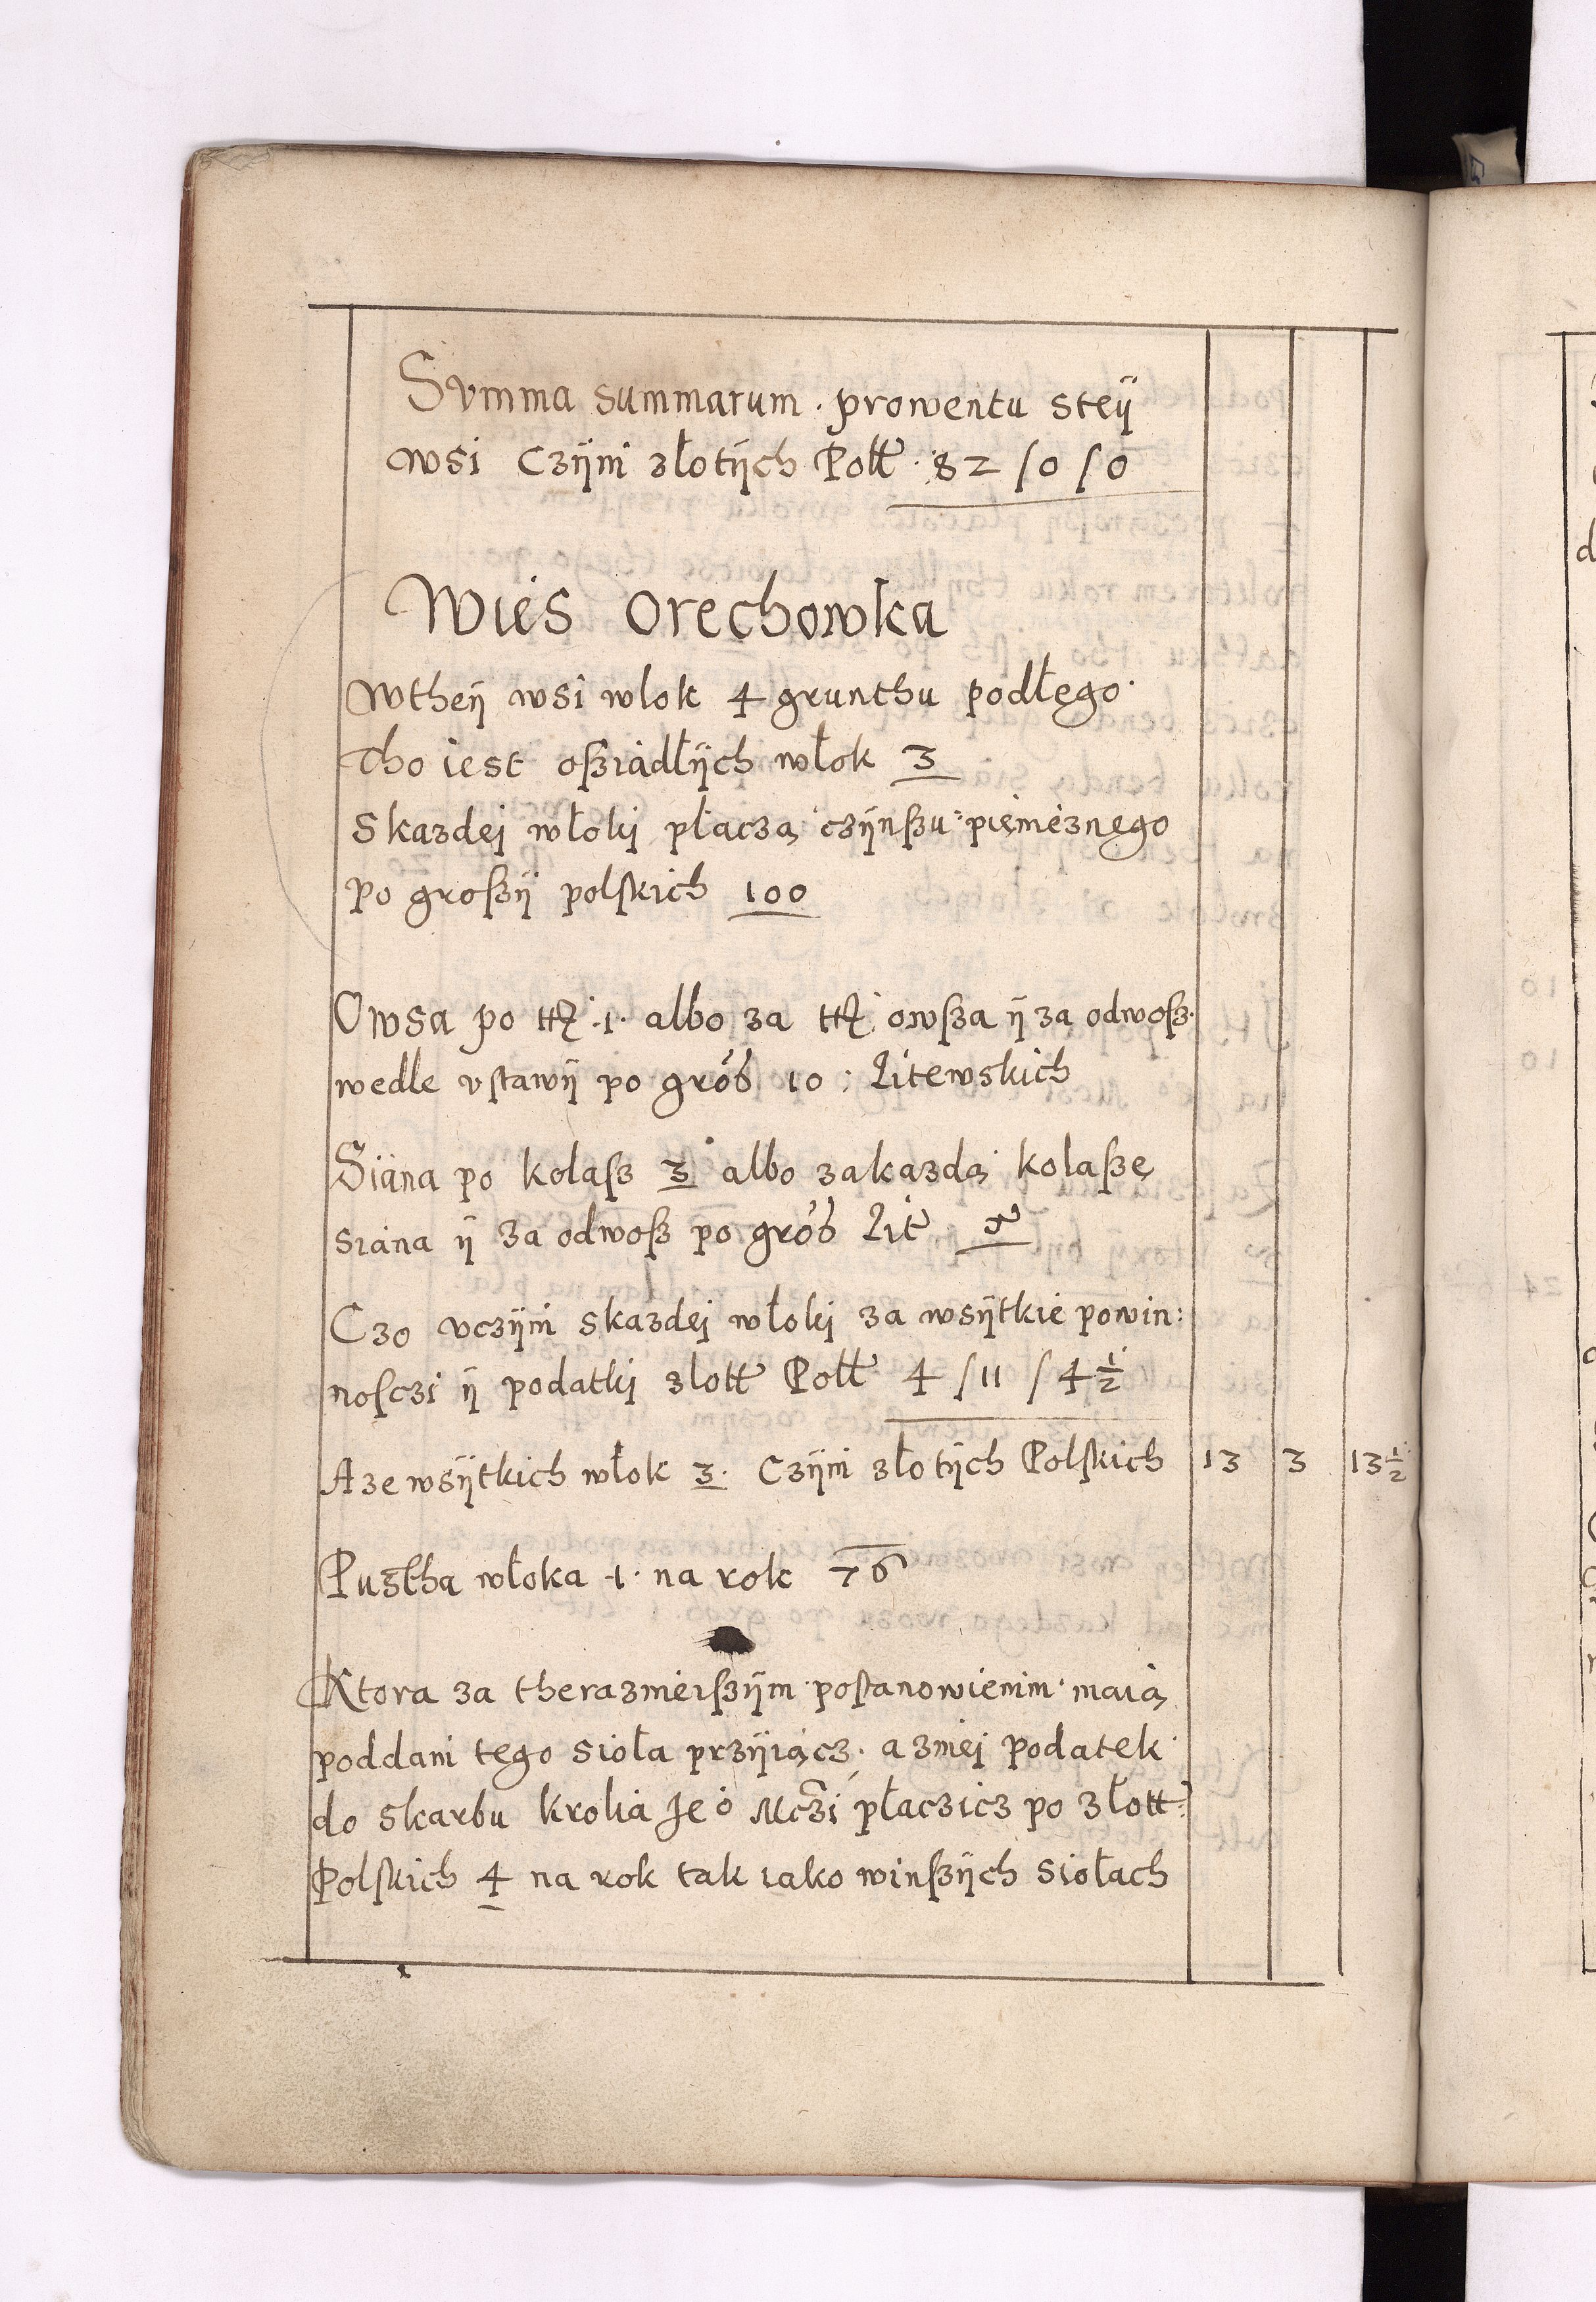 Svmma summarum. prowentu steÿ
wsi Czÿni złotÿch Połł. 82 / 0 / 0
Wies Orechowka
Wtheÿ wsi wlok 4 grunthu podłego.
Tho iest oßiadłÿch włok 3
Skazdej włokj płaczą czÿnßu pienieznego
po großÿ polskich 100
Owsa po .1. albo za owßa ÿ za odwoß.
wedle vstawÿ po groß 10 : Litewskich
Siana po kolaß 3 albo zakazdą kolaßę
siana ÿ za odwoß po groß Lit
Czo vczÿni skazdej włokj za wsÿtkie powin:
nosczi ÿ podatkj złott Połł 4 / 11 / 4 1/2
Aze wsÿtkich włok 3. Czÿni złotÿch Polskich 13 3 13 1/2
Pustha włoka .1. na rok 76
Ktora za therazmeißÿm postanowienim maią
poddani tego sioła przÿiącz. a zniej podatek
do skarbu krolia Je o Mczi płaczicz po złott:
Polskich 4 na rok tak iako winßÿch siołach
10
10
24